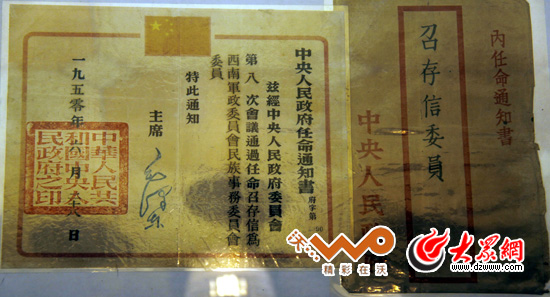 中央人民政府任命通知書
府字第
茲經中央人民政府委員會
第八次會議通過任命召存信為
西南軍政委員會民族事務委員會
委員
特此通知
主席
毛澤東
一九五零年 月 日
中華人民共
和國中央人
民政府之印
內任命通知書
召存信委員
中央人民
沃
精彩在沃
大众网
www.dzwww.com